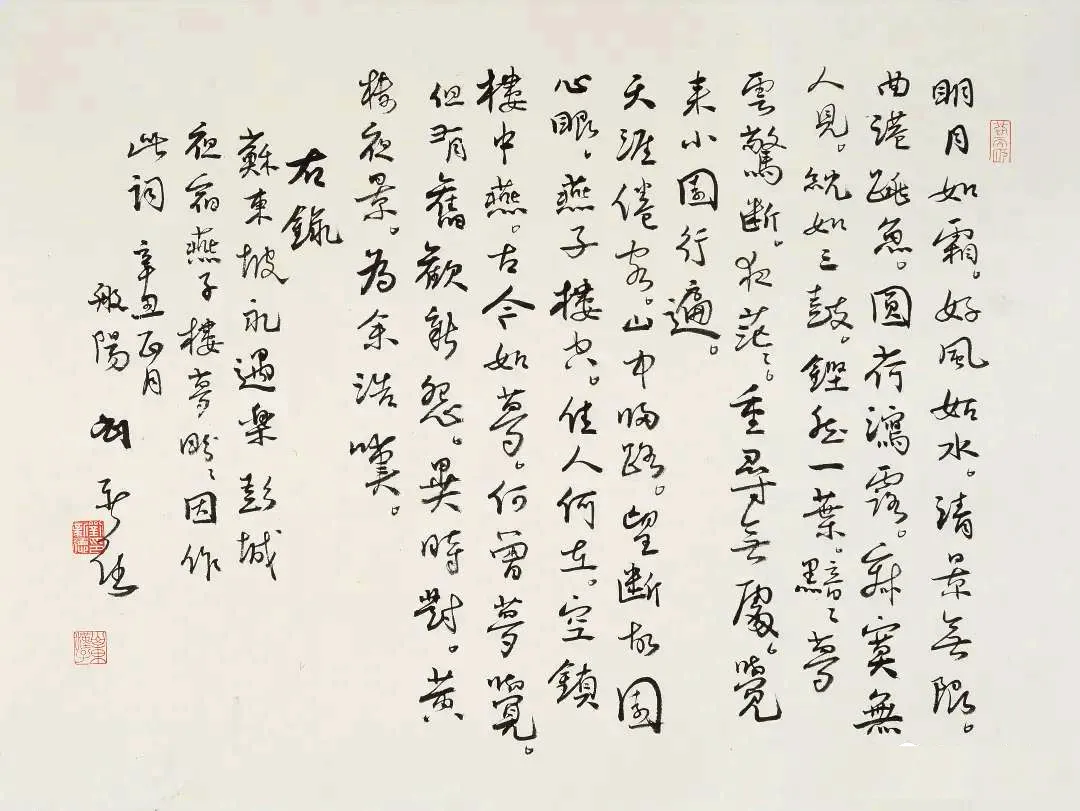 明月如霜。好風如水。清景無限。
曲港跳魚。圓荷瀉露。寂寞無
人見。紞如三鼓。鏗然一葉。黯〻夢
雲驚斷。夜茫〻。重尋無處。覺
来小園行遍。
天涯倦客。山中歸路。望斷故園
心眼。燕子樓空。佳人何在。空鎖
樓中燕。古今如夢。何曾夢覺。
但有舊歡新怨。異時對。黄
樓夜景。為余浩嘆。
右錄
蘇東坡永遇樂 彭城
夜宿燕子樓夢盼〻因作
此詞 辛丑正月
般陽